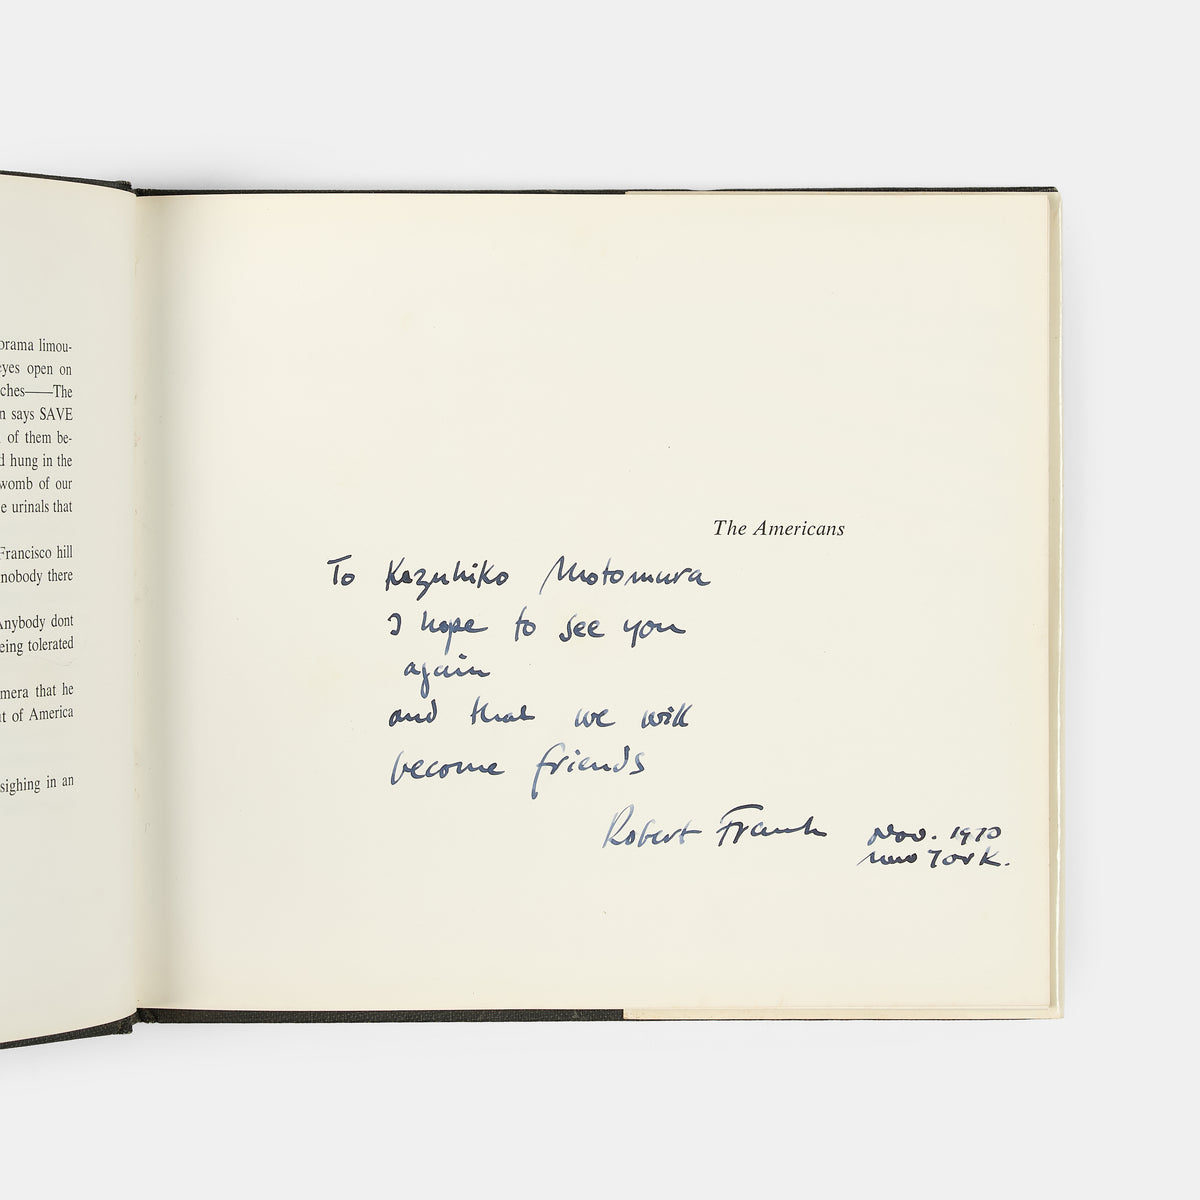 orama limou-
eyes open on
ches——The
n says SAVE
of them be-
d hung in the
womb of our
e urinals that
Francisco hill
nobody there
Anybody dont
eing tolerated
mera that he
t of America
sighing in an
The Americans
To Kazuhiko Motomura
I hope to see you
again
and that we will
become friends
Robert Frank Nov. 1970
New York.